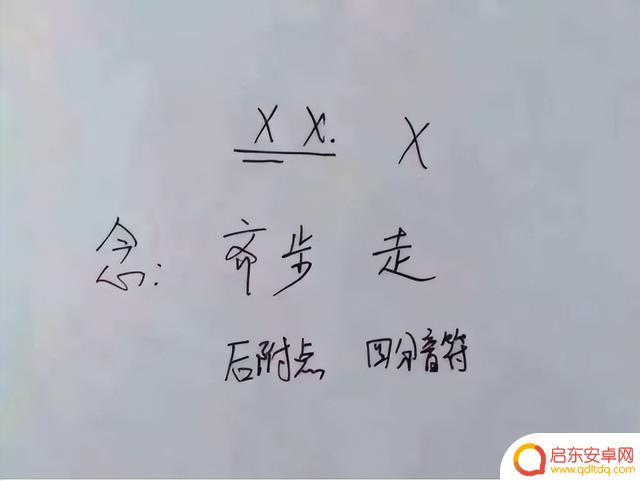 X X. X
念: 齐步 走
后附点 四分音符
启东安卓网
www.qdltdq.com